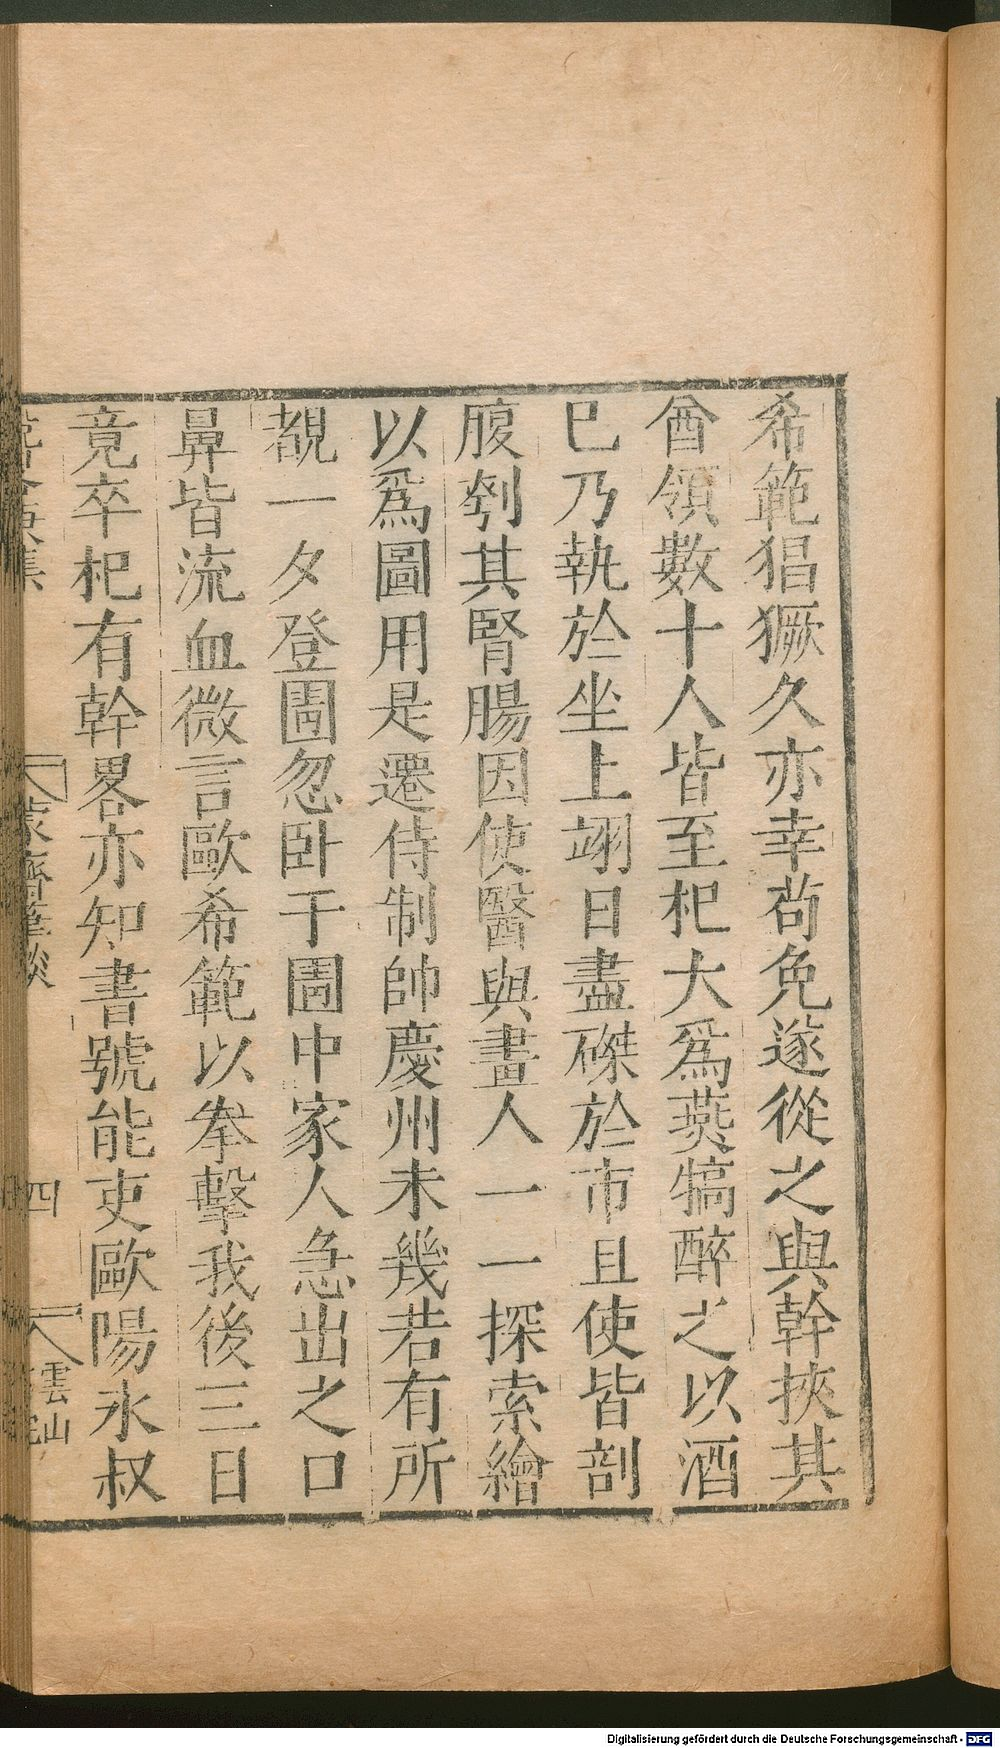 希範猖獗久亦幸茍免遂從之與幹挾其
酋領數十人皆至杞大爲燕犒醉之以酒
已乃執於坐上翊日盡磔於市且使皆剖
腹刳其腎腸因使醫與畫人一一探索繪
以爲圖用是遷侍制帥慶州未幾若有所
覩一夕登圊忽卧于圊中家人急出之口
鼻皆流血微言歐希範以拳擊我後三日
竟卒杞有幹畧亦知書號能吏歐陽永叔
蒙齋筆談
四
雲山
Digitalisierung gefördert durch die Deutsche Forschungsgemeinschaft - DFG